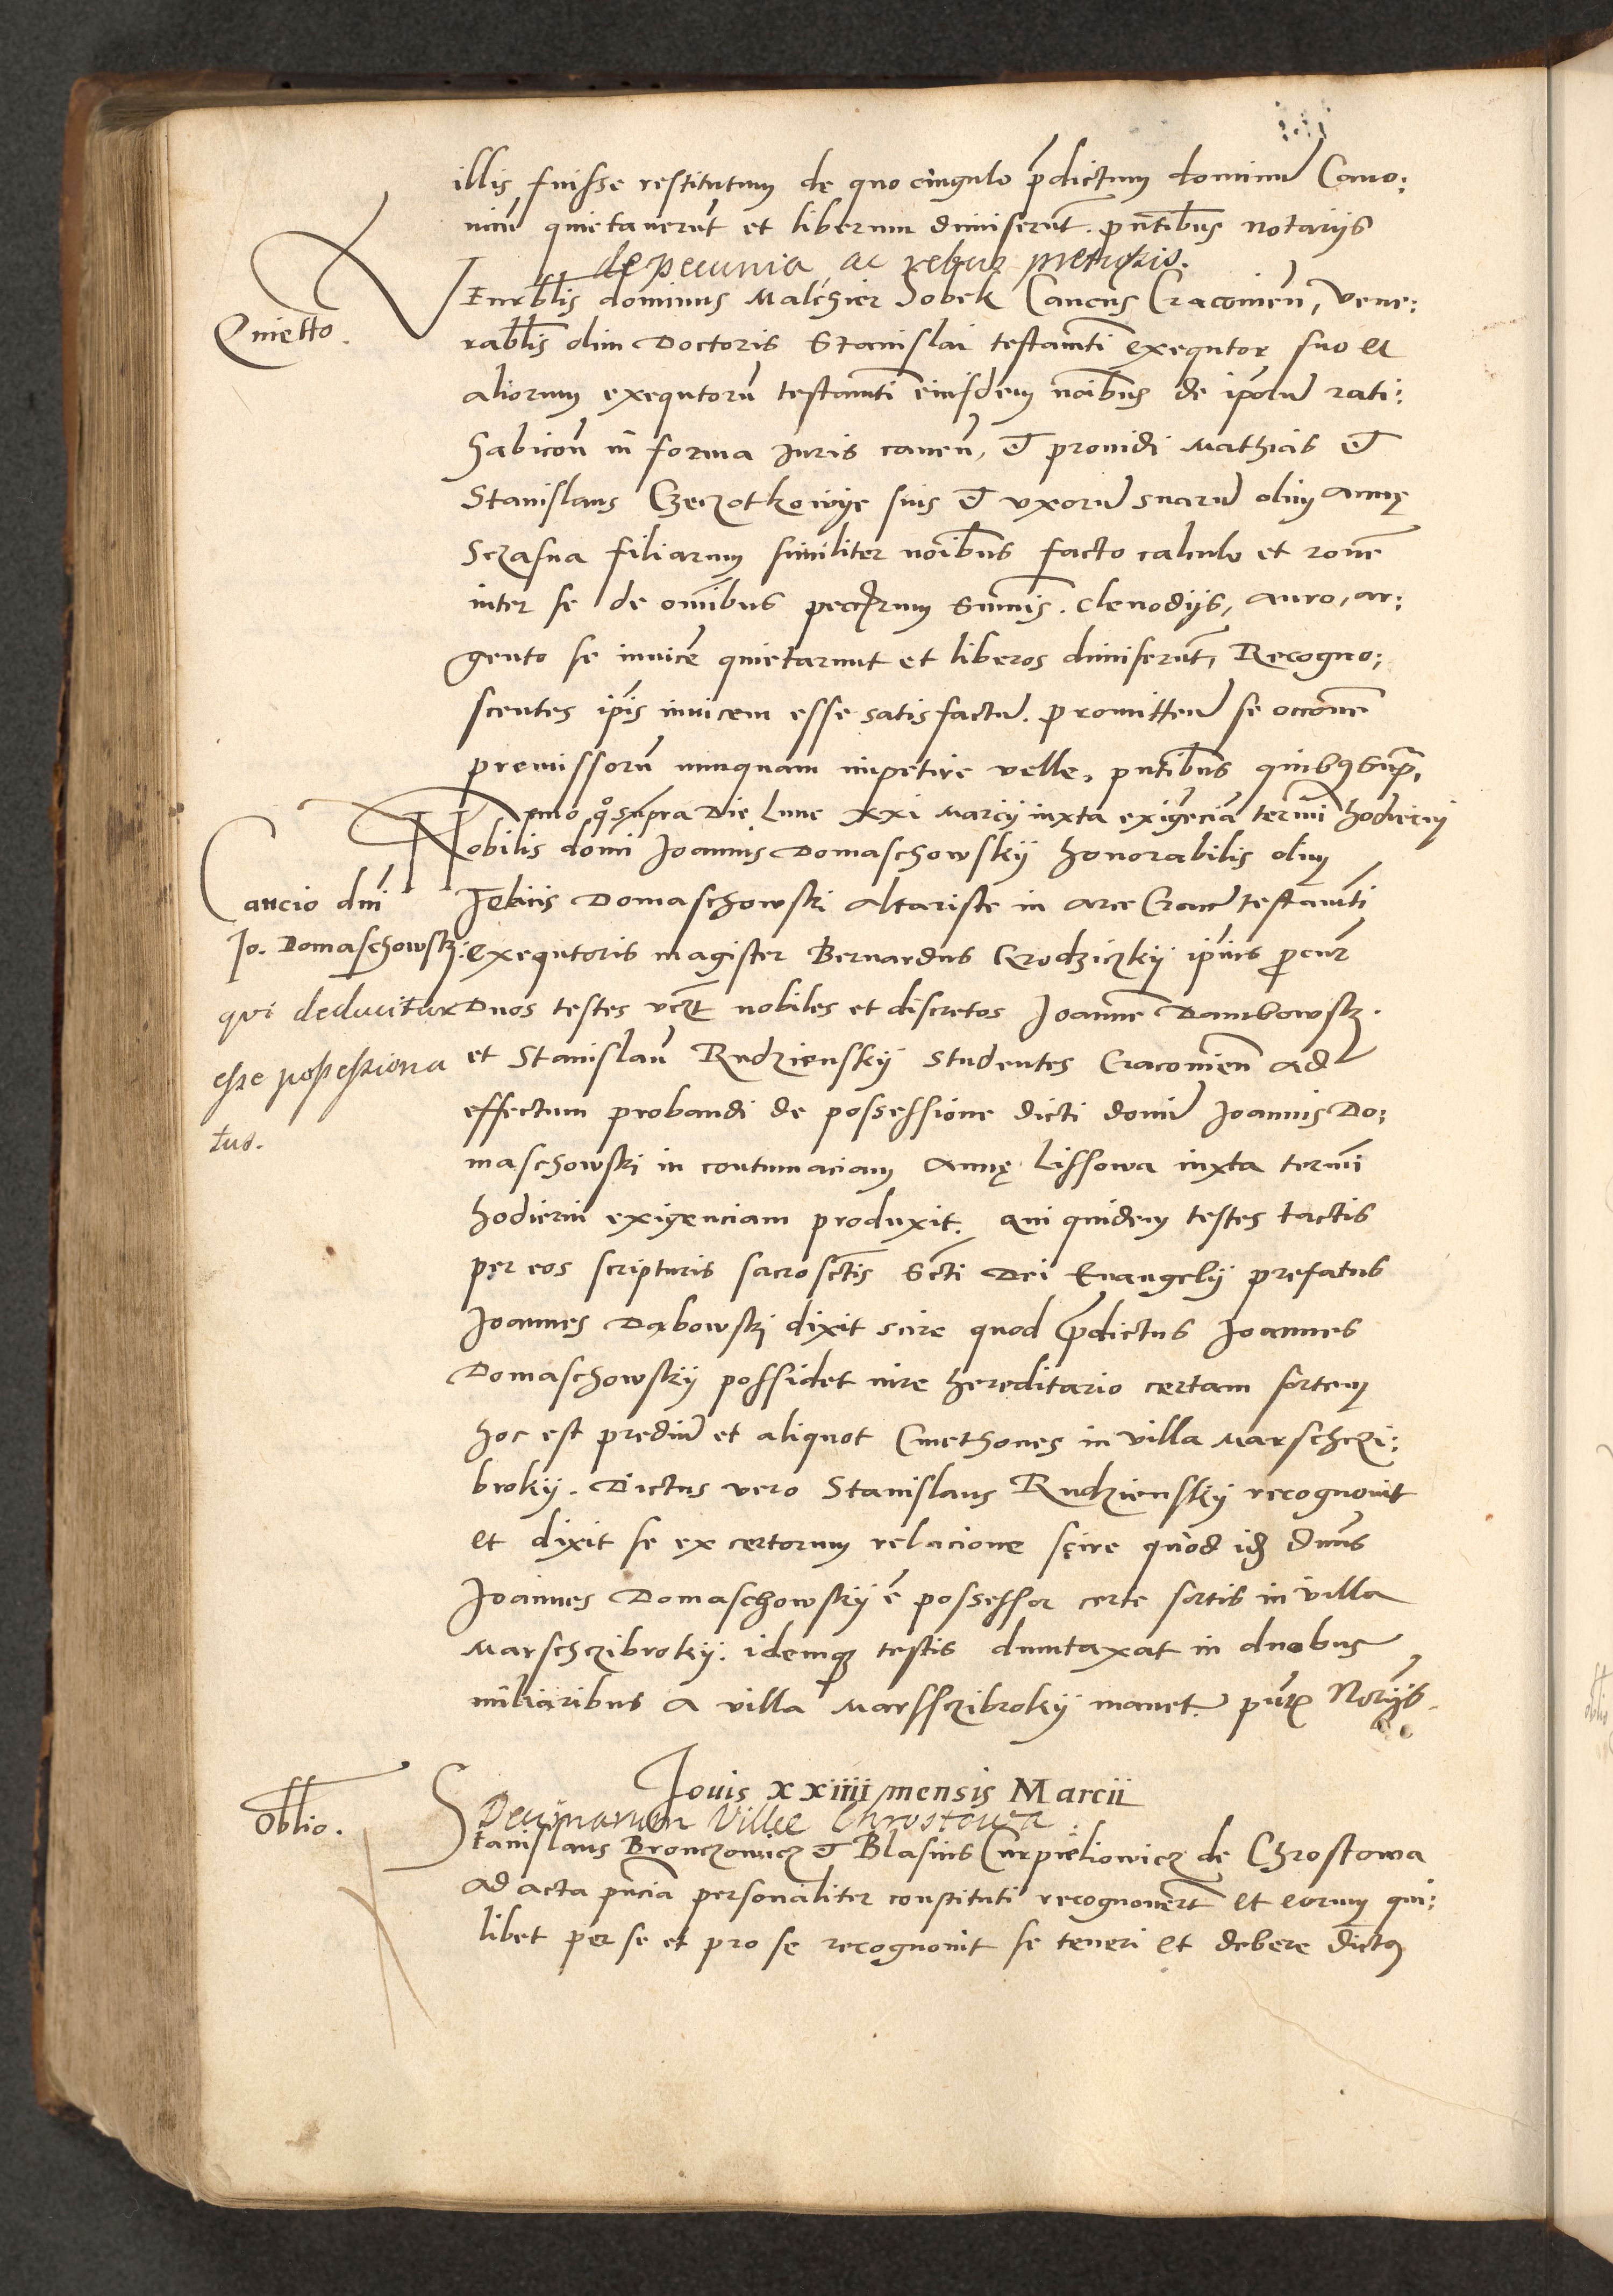 illis fuisse restitutum de quo cingulo p̄dictum dominū Cano:
nicū quietaverūt et liberum dimiserūt. pn̄tibus notariis
de pecunia ac rebus
Quietto.
Venrblis dominus Malchier Sobek Cancus Cracovien̄, vene:
rablis olim Doctoris Stanislai testamti exequtor suo et
aliorum exequtorū testamti eiusdem noibus de ipōrū rati:
habicōn in forma iuris caven̄, et providi Mathias et
Stanislaus Czeczotkowye suis et uxorū suarū olim Annę
Sczasna filiarum similiter noibus facto calculo et ronē
inter se de omībus peccrum summis. clenodiis, auro, ar:
gento se invicē quietarunt et liberos dimiserūt, Recogno:
scentes ip̄is invicem esse satisfactū. promitten̄ se occōne
premissorū nunquam impetire velle, pn̄tibus quibus supra,
Anno quo supra Die lune xxi Marcii iuxta exigēciā termi hodierni
Nobilis domi Joannis Domaschowskij honorabilis olim
Caucio dni
Felicis Domaschowski altariste in arce Cracoū testamti
Jo. Domaschowski:
exequtoris magister Bernardus Grodziczkij ipius p̄cur
qui deducitur
Duos testes vczt nobiles et discretos Joannē Dambowski.
esse possessiona
et Stanislaū Rudzienskij studentes Cracovien̄ ad
tus.
effectum probandi de possessione dicti domi Joannis Do:
maschowski in contumaciam Annę Lissowa iuxta termi
hodierni exigenciam produxit. Qui quidem testes tactis
per eos scripturis sacrosctis Scti Dei Evangelij prefatus
Joannes Dąbowski dixit scire quod p̄dictus Joannes
Domaschowskij possidet iure hereditario certam sortem
hoc est prediū et aliquot Cmethones in villa Marschczi:
brokij. Dictus vero Stanislaus Rudzienskij recognovit
et dixit se ex certorum relacione scire quod idē Dnus
Joannes Domaschowskij ē possessor certe sortis in villa
Marschczibrokij: idemq testis dumtaxat in duobus
miliaribus a villa Marssczibrokij manet. pn̄t Notriis
Jovis xxiiii mensis Marcii
Oblio.
Decimarum Villae Chrostowa
Stanislaus Bronczowicz et Blasius Curpieliowicz de Chrostowa
ad acta pn̄cia personaliter constituti recognovert et eorum qui:
libet per se et pro se recognovit se teneri et debere dictus